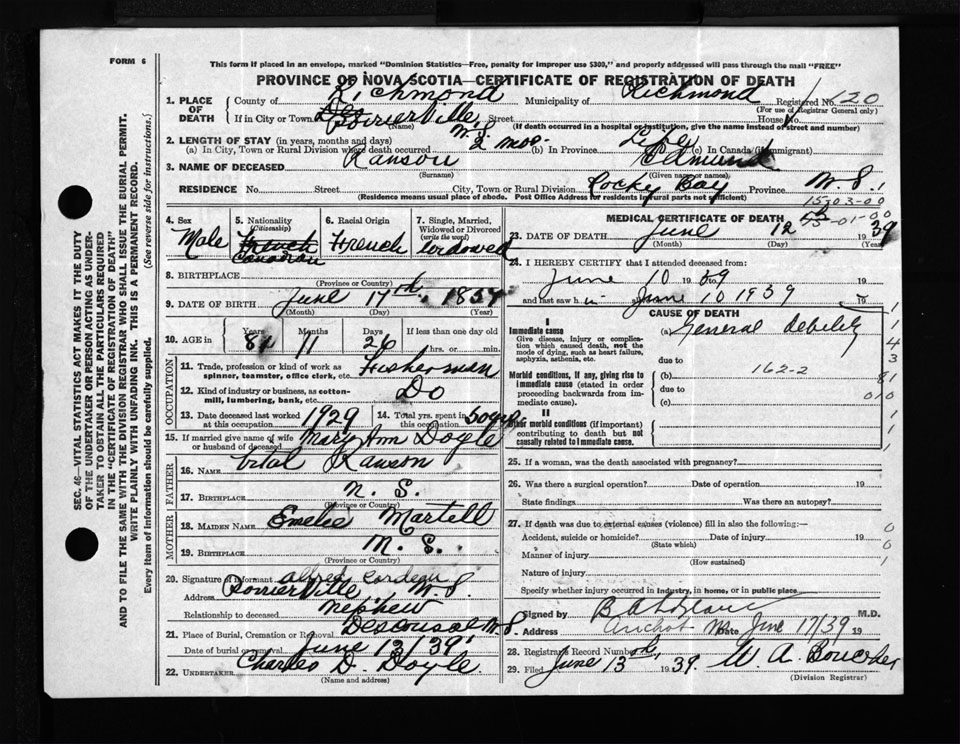 FORM 6
This form if placed in an envelope, marked "Dominion Statistics—Free, penalty for improper use $300," and properly addressed will pass through the mail "FREE"
PROVINCE OF NOVA SCOTIA—CERTIFICATE OF REGISTRATION OF DEATH
1. PLACE OF DEATH County of Richmond Municipality of Richmond Registered No 120
(For use of Registrar General only)
If in City or Town Poirierville, N.S. Street House No.
(Name) (If death occurred in a hospital or institution, give the name instead of street and number)
2. LENGTH OF STAY (in years, months and days)
(a) In City, Town or Rural Division where death occurred 2 mos. (b) In Province Life (c) In Canada (if immigrant)
3. NAME OF DECEASED Ranson Edmund
(Surname) (Given name or names)
RESIDENCE No. Street City, Town or Rural Division Rocky Bay Province N.S.
(Residence means usual place of abode. Post Office Address for residents in rural parts not sufficient)
15-03-00
53-01-00
4. Sex Male
5. Nationality (Citizenship) French Canadian
6. Racial Origin French
7. Single, Married, Widowed or Divorced (write the word) widowed
8. BIRTHPLACE
(Province or Country)
9. DATE OF BIRTH June 17th, 185
(Month) (Day) (Year)
10. AGE in Years Months Days If less than one day old
81 11 26 hrs. or min.
OCCUPATION
11. Trade, profession or kind of work as spinner, teamster, office clerk, etc. Fisherman
12. Kind of industry or business, as cotton-mill, lumbering, bank, etc. Do
13. Date deceased last worked at this occupation 1929
14. Total yrs. spent in this occupation 50 yrs
15. If married give name of wife or husband of deceased Mary Ann Doyle
FATHER
16. NAME Vital Ranson
17. BIRTHPLACE N.S.
(Province or Country)
MOTHER
18. MAIDEN NAME Emelie Martell
19. BIRTHPLACE N.S.
(Province or Country)
20. Signature of informant Alfred
Address Poirierville N.S.
Relationship to deceased Nephew
21. Place of Burial, Cremation or Removal Descousse N.S.
Date of burial or removal June 13/39
22. UNDERTAKER Charles D. Doyle
(Name and address)
MEDICAL CERTIFICATE OF DEATH
23. DATE OF DEATH June 12 1939
(Month) (Day) (Year)
24. I HEREBY CERTIFY that I attended deceased from
June 10 1939 to 19
and last saw h im June 10 1939 19
CAUSE OF DEATH
I
Immediate cause (a) General debility
Give disease, injury or complication which caused death, not the mode of dying, such as heart failure, asphyxia, asthenia, etc.
due to
Morbid conditions, if any, giving rise to immediate cause (stated in order proceeding backwards from immediate cause).
(b) 162-2
due to
(c)
II
Other morbid conditions (if important) contributing to death but not causally related to immediate cause.
1
1
4
3
81
010
1
1
1
25. If a woman, was the death associated with pregnancy?
26. Was there a surgical operation? Date of operation 19
State findings Was there an autopsy?
27. If death was due to external causes (violence) fill in also the following:—
Accident, suicide or homicide? Date of injury 19
(State which)
Manner of injury
(How sustained)
Nature of injury
0
0
1
Specify whether injury occurred in industry, in home, or in public place
Signed by M.D.
Address Arichat NS Date June 17/39 19
28. Registrar's Record Number
29. Filed June 13th 1939. W. A.
(Division Registrar)
SEC. 46—VITAL STATISTICS ACT MAKES IT THE DUTY
OF THE UNDERTAKER OR PERSON ACTING AS UNDER-
TAKER TO OBTAIN ALL THE PARTICULARS REQUIRED
IN THE "CERTIFICATE OF REGISTRATION OF DEATH"
AND TO FILE THE SAME WITH THE DIVISION REGISTRAR WHO SHALL ISSUE THE BURIAL PERMIT.
WRITE PLAINLY WITH UNFADING INK. THIS IS A PERMANENT RECORD.
Every item of information should be carefully supplied. (See reverse side for instructions.)